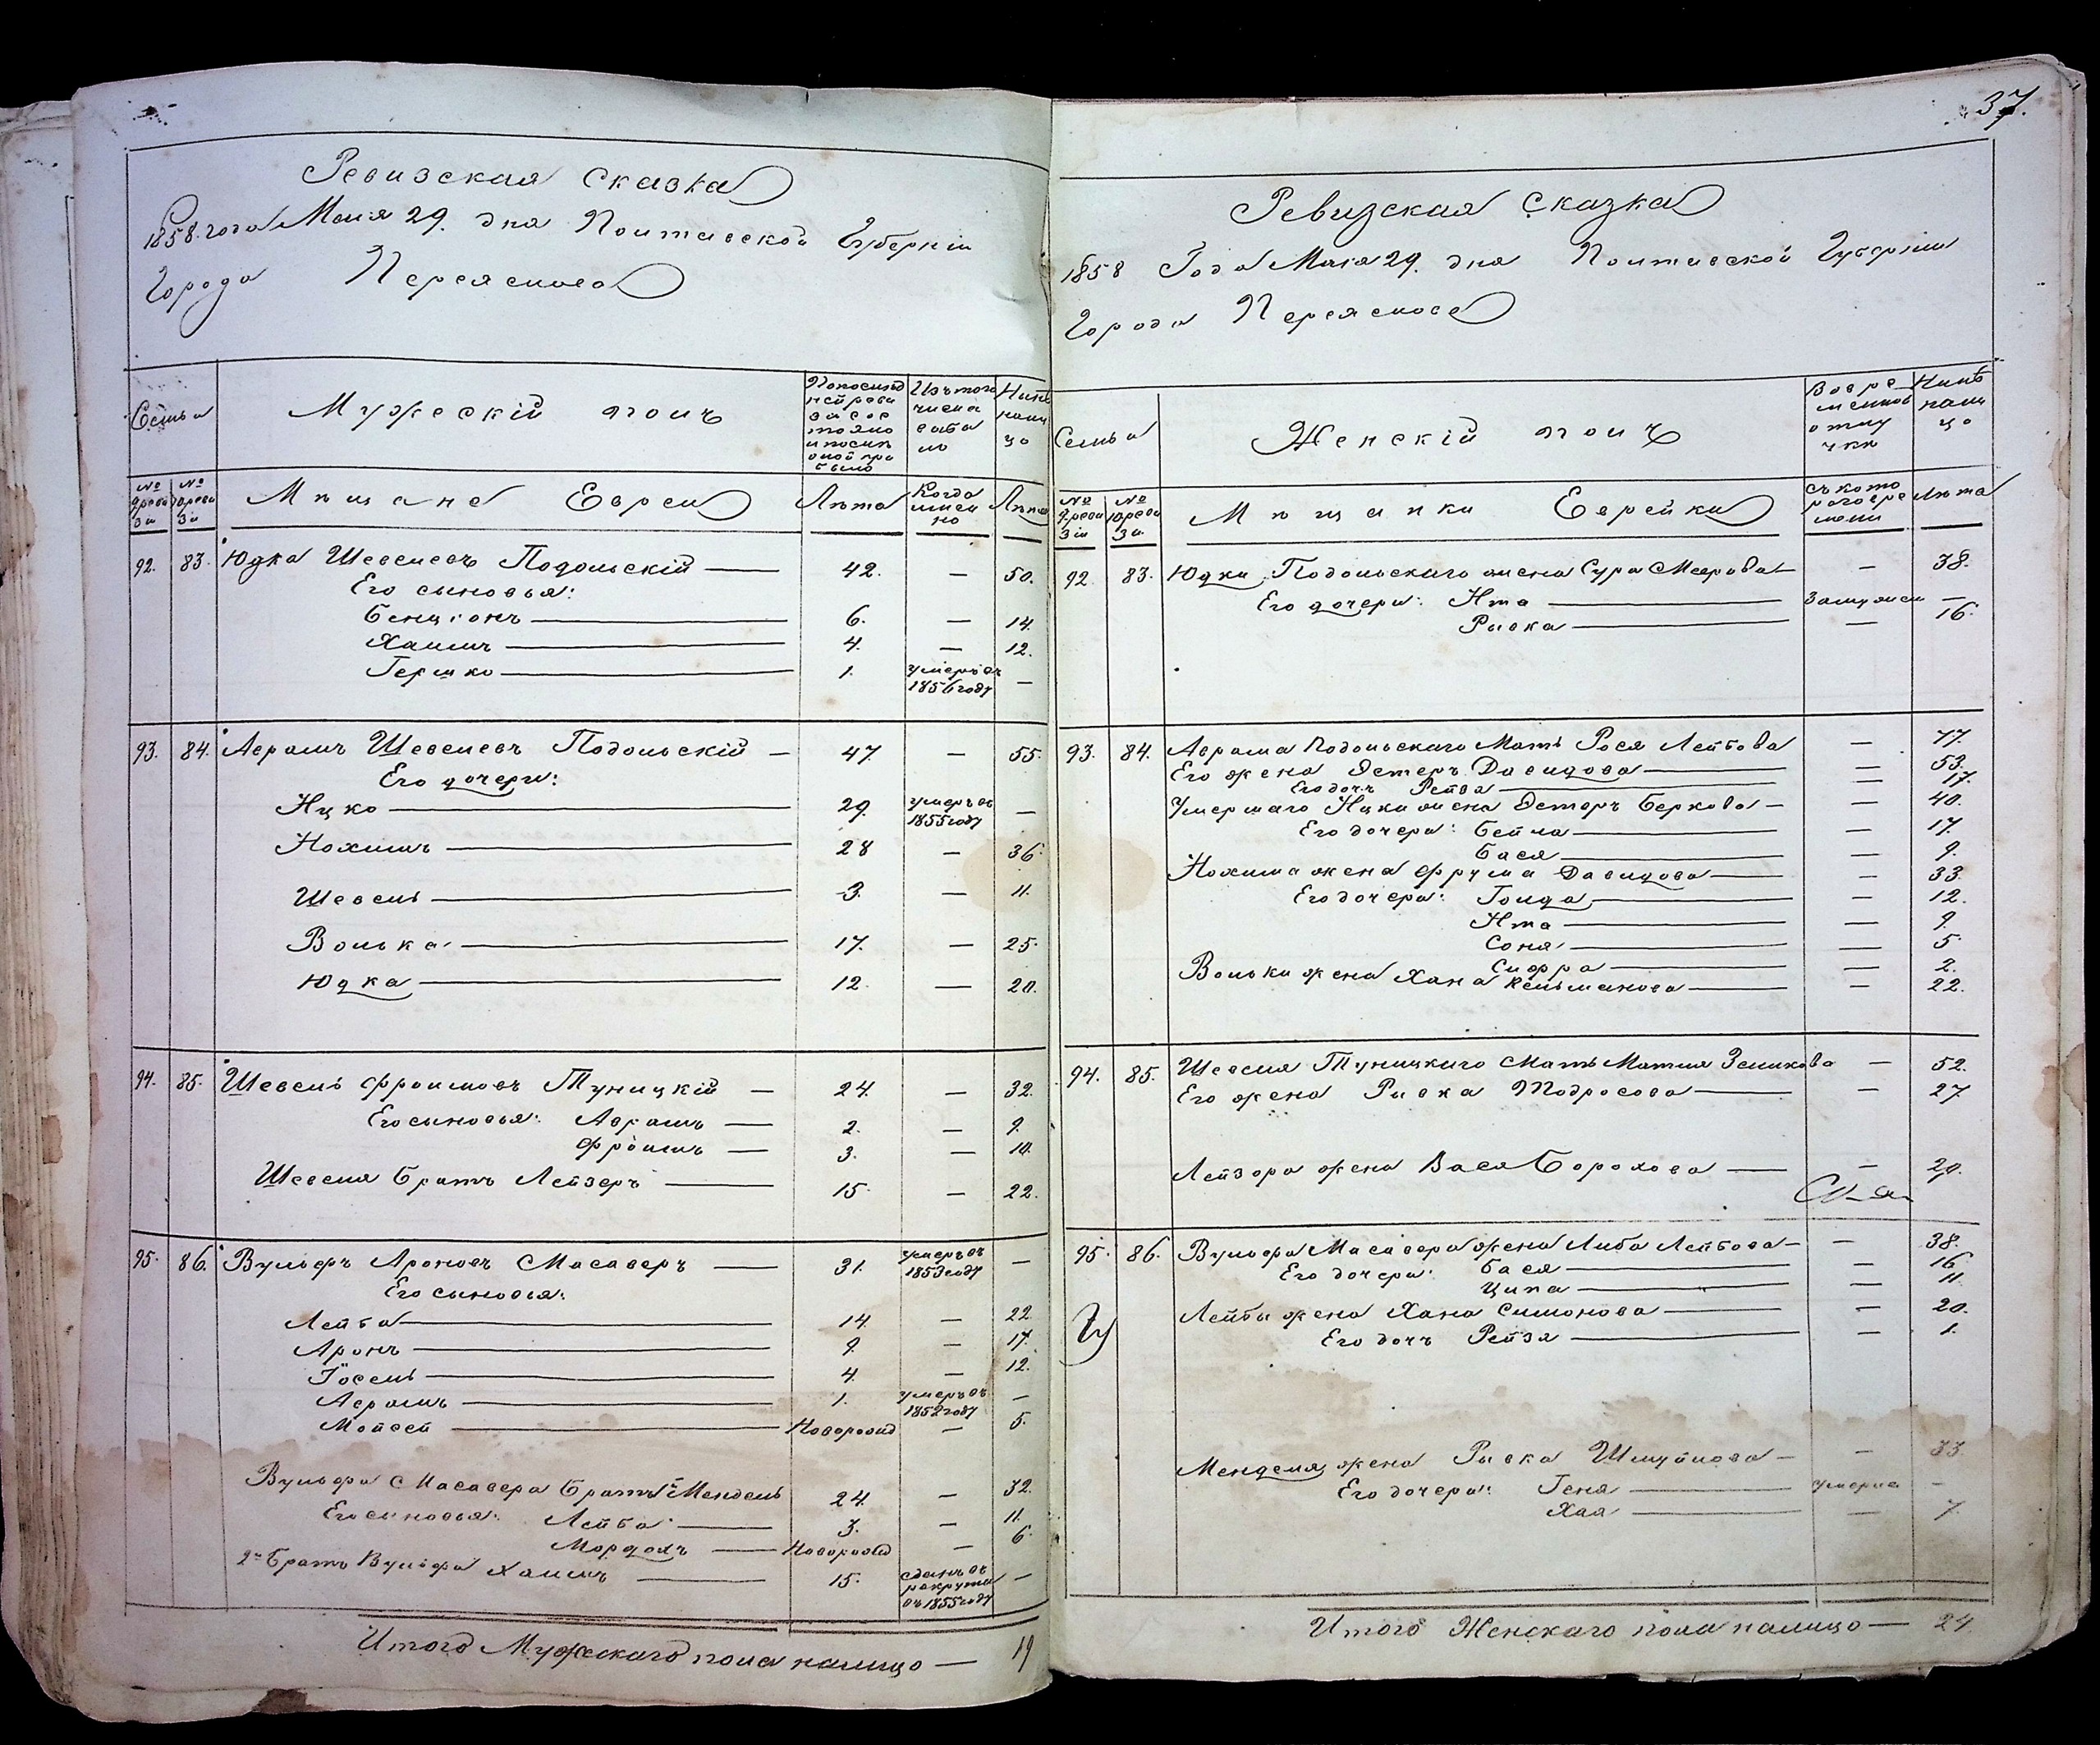 37.
Ревизская Сказка
1858. года Мая 29. дня Полтавской Губерніи
Города Переяслова
Семья
Мужескій полъ
По послѣд
ней реви
зіи сос
тояло
и послѣ
оной при
было
Изъ того
числа
выбы
ло
Нынѣ
налиц
цо
№
9 реви
зіи
№
10 реви
зіи
Мѣщане Евреи
Лѣта
Когда
имен
но
Лѣта
92. 83. Юдка Шевелевъ Подольскій — 42. — 50.
Его сыновья:
Бенціонъ — 6. — 14.
Хаимъ — 4. — 12.
Гершко — 1. умеръ въ 1856 году —
93. 84. Аврамъ Шевелевъ Подольскій — 47. — 55.
Его дочери:
Ицко — 29. умеръ въ 1855 году —
Нохимъ — 28 — 36.
Шевель — 3. — 11.
Волька — 17. — 25.
Юдка — 12. — 20.
94. 85. Шевель Фроимовъ Туницкій — 24. — 32.
Его сыновья: Аврамъ — 2. — 9.
Фроимъ — 3. — 10.
Шевеля Братъ Лейзеръ — 15. — 22.
95. 86. Вульфъ Ароновъ Масаверъ — 31. умеръ въ 1853 году —
Его сыновья:
Лейба — 14. — 22
Аронъ — 9. — 17.
Іосель — 4. — 12.
Аврамъ — 1. умеръ въ 1852 году —
Мойсей — Новорожд — 5.
Вульфа Масавера Братъ Мендель 24. — 32.
Его сыновья: Лейба — 3. — 11.
Мордохъ — Новорожд — 6.
2й Братъ Вульфа Хаимъ — 15. сданъ въ рекруты въ 1855 году —
Итого Мужескаго пола налицо — 19
Ревизская Сказка
1858 Года Мая 29. дня Полтавской Губерніи
Города Переяслова
Семья
Женскій полъ
Во вре
менной
отлу
чки
Нынѣ
нали
цо
№
9 реви
зіи
№
10 реви
зіи
Мѣщанки Еврейки
съ кото
раго вре
мени
Лѣта
92. 83. Юдки Подольскаго жена Сура Меерова — — 38.
Его дочери: Ита — Замужем —
Ривка — — 16.
93. 84. Аврама Подольскаго Мать Рося Лейбова — 77.
Его жена Эстеръ Давидова — — 53.
Его дочь Рейза — — 17.
Умершаго Ицки жена Эстеръ Беркова — — 40.
Его дочери: Бейла — — 17.
Бася — — 9.
Нохима жена Фрума Давидова — — 33.
Его дочери: Голда — — 12.
Ита — — 9.
Соня — — 5.
Сифра — — 2.
Вольки жена Хана Кельманова — — 22.
94. 85. Шевеля Туницкаго Мать Матля Зеликова — 52.
Его жена Ривка Тодросова — — 27
Лейзора жена Вася Борохова — — 20.
95. 86. Вульфа Масавера жена Либа Лейбова — — 38.
Его дочери: Бася — — 16.
Ципа — — 11.
Лейбы жена Хана Симонова — — 20.
Его дочь Рейза — — 1.
Менделя жена Ривка Шмуйлова — — 33
Его дочери: Геня — умерла —
Хая — — 7.
Итого Женскаго пола налицо — 24